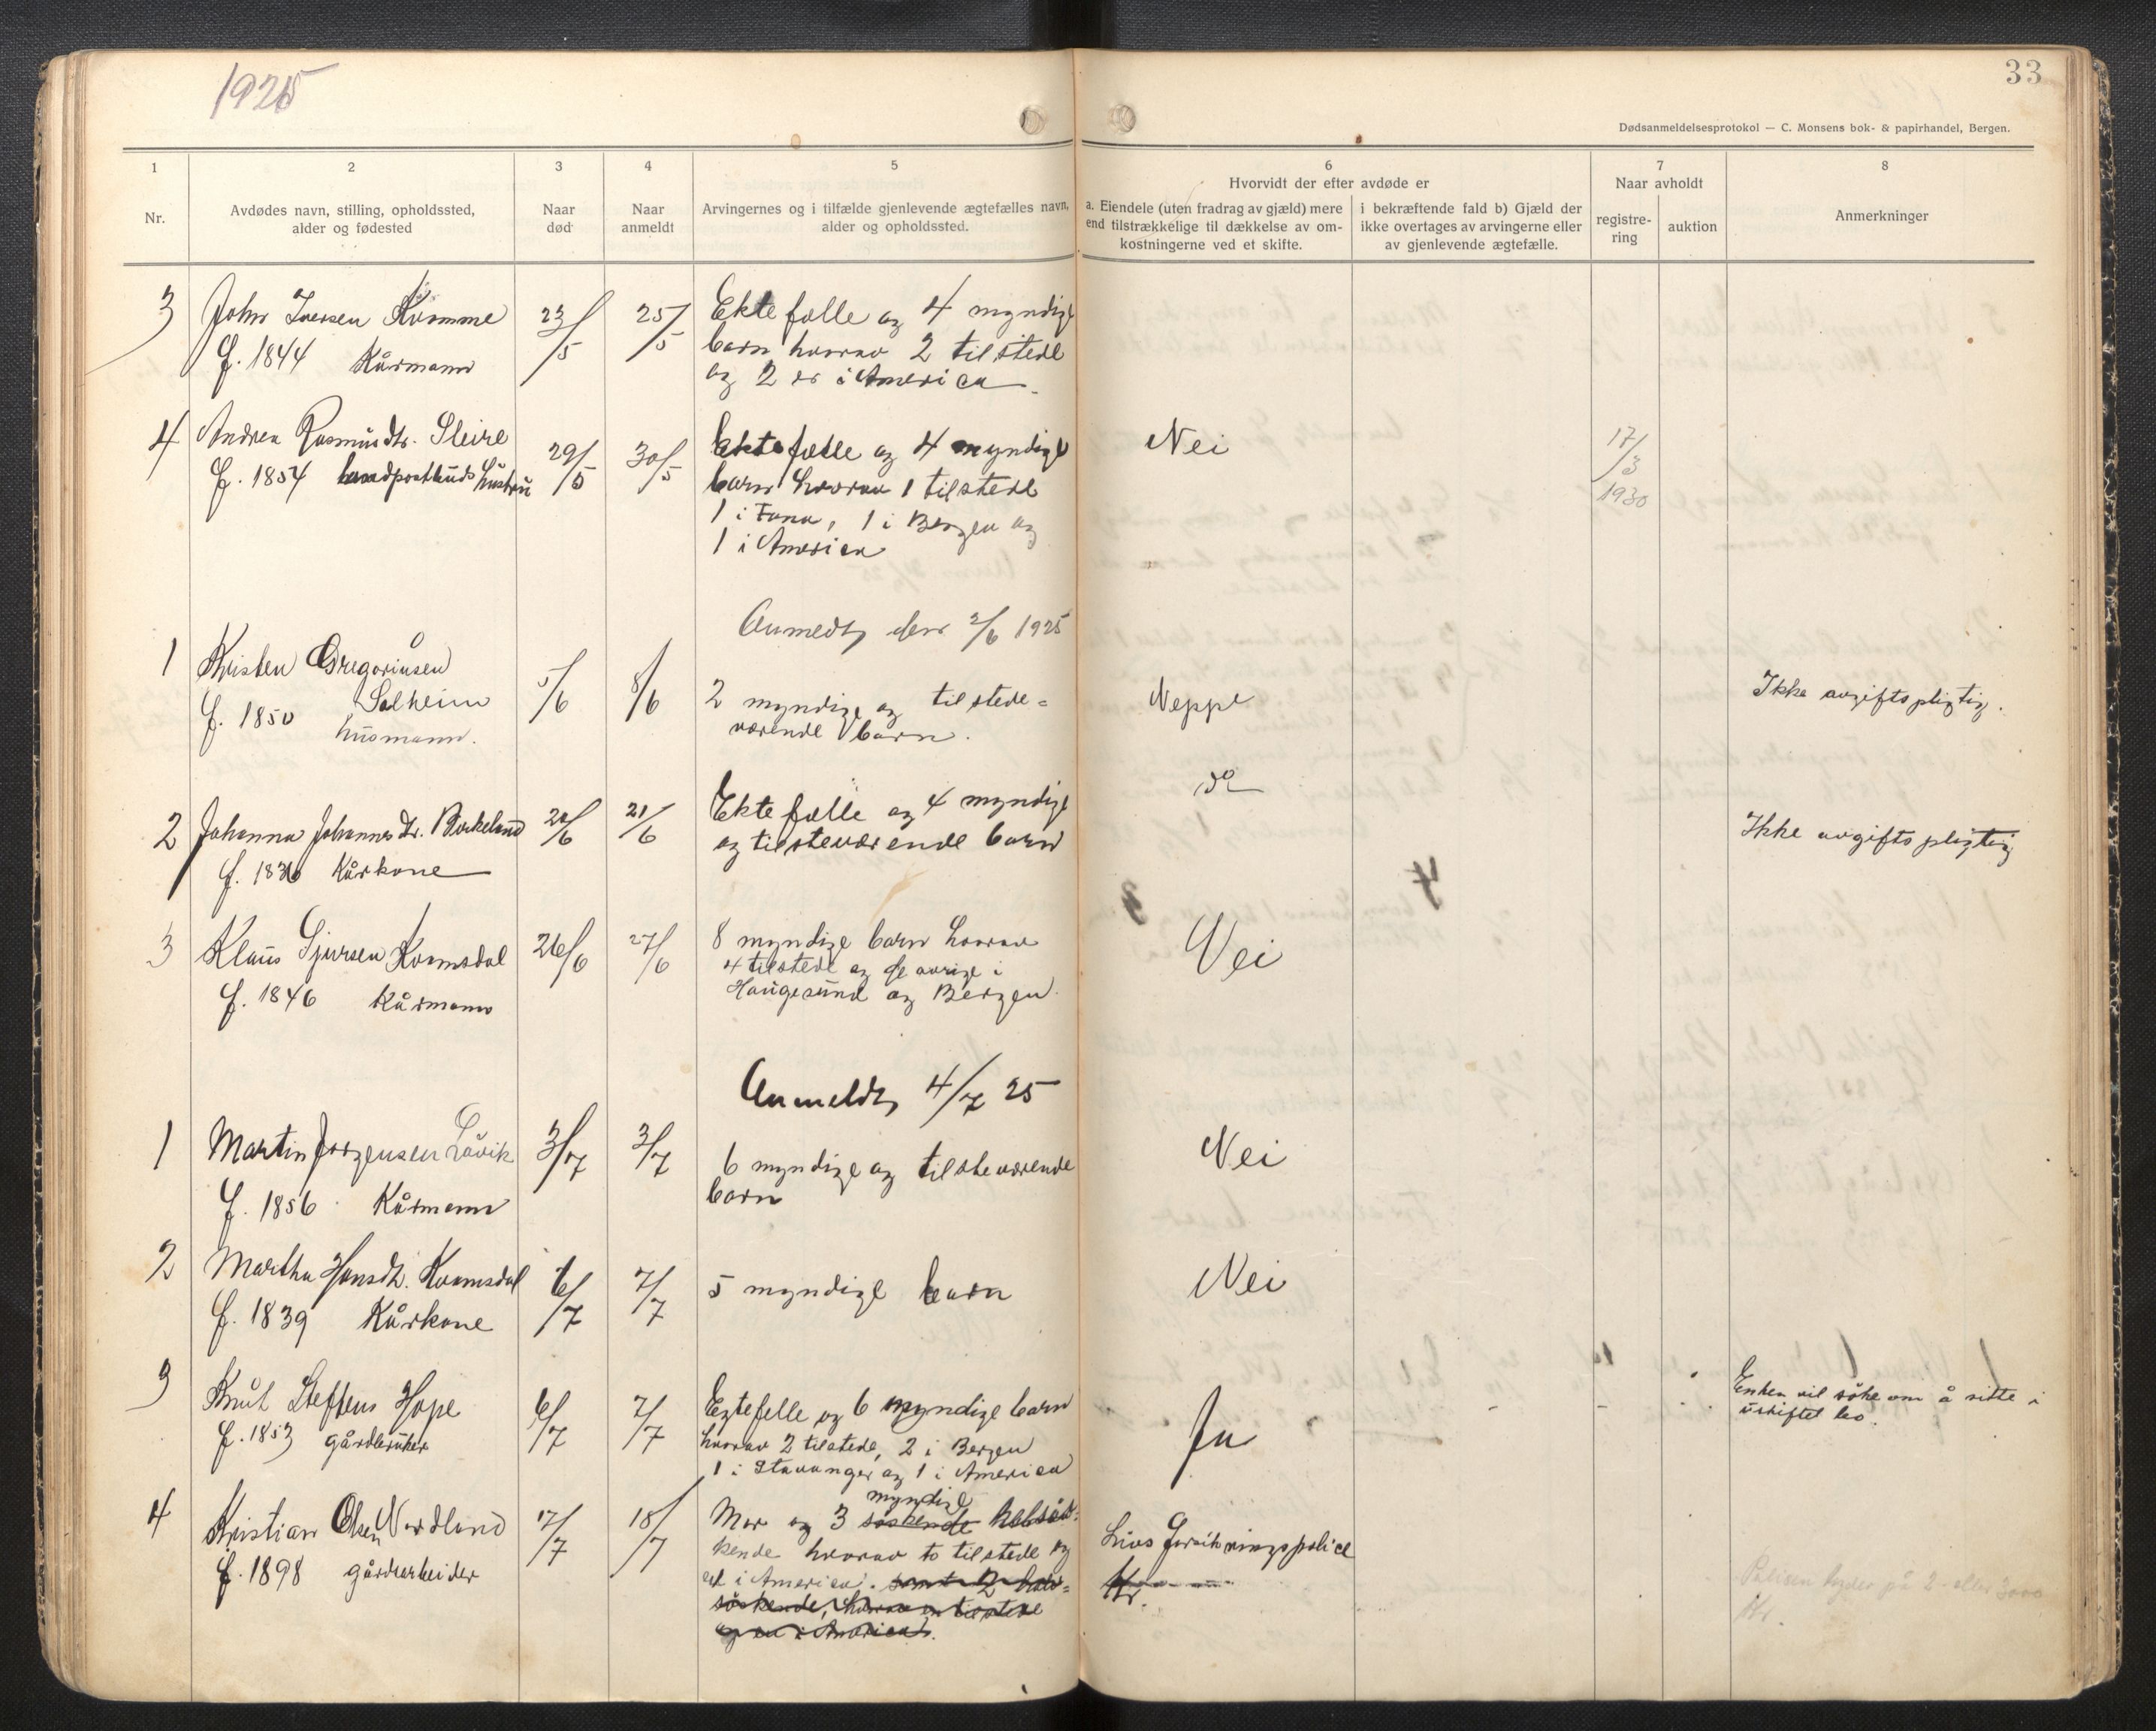 1925
33
Dødsanmeldelsesprotokol — C. Monsens bok- & papirhandel, Bergen.
1
2
3
4
5
6
7
8
Nr.
Avdødes navn, stilling, opholdssted,
alder og fødested
Naar
død
Naar
anmeldt
Arvingernes og i tilfælde gjenlevende ægtefælles navn,
alder og opholdssted.
Hvorvidt der efter avdøde er
a. Eiendele (uten fradrag av gjæld) mere
end tilstrækkelige til dækkelse av om-
kostningerne ved et skifte.
i bekræftende fald b) Gjæld der
ikke overtages av arvingerne eller
av gjenlevende ægtefælle.
Naar avholdt
registre-
ring
auktion
Anmerkninger
3 John Iversen Kvamme 23/5 25/5 Ektefælle og 4 myndige
f. 1844 Kårmann barn hvorav 2 tilstede
og 2 er i America.
4 Andrea Rasmusdtr. Sleire 29/5 30/5 Ektefælle og 4 myndige Nei 17/3 1930
f. 1854 landpostbuds hustru barn hvorav 1 tilstede
1 i Fana, 1 i Bergen og
1 i America
Anmedt, den 2/6 1925
1 Kristen Gregoriusen 5/6 8/6 2 myndige og tilstede= Neppe Ikke avgiftspligtig.
Solheim
f. 1850 husmann. værende barn.
2 Johanna Johannesdtr. Birkeland 20/6 21/6 Ektefælle og 4 myndige do Ikke avgiftspligtig
f. 1836 Kårkone og tilsteværende barn
3 Klaus Sjursen Kvamsdal 26/6 27/6 8 myndige barn hvorav Nei
4 tilstede og de øvrige i
f. 1846 Kårmann Haugesund og Bergen.
Anmeldt, 4/7 25
1 Martin Jørgensen Låvik 3/7 3/7 6 myndige og tilsteværende Nei
f. 1856 Kårmann barn
2 Martha Hansdt. Kvamsdal 6/7 7/7 5 myndige barn Nei
f. 1839 Kårkone
3 Knut Steffens Hope 6/7 7/7 Egtefelle og 6 myndige barn Ja Enken vil søke om å sitte i
f. 1853 gårdbruker hvorav 2 tilstede, 2 i Bergen uskiftet bo.
1 i Stavanger og 1 i America
4 Kristian Olsen Nordland 17/7 18/7 Mor og 3 myndige søskende halvsøs- Livs forsikringspolice
f. 1898 gårdarbeider kende hvorav to tilstede og Kr.
et i America. samt 2 halv=
søskende, hvorav en tilstede
og en i America.
Polisen lyder på 2 eller 3000
Kr.